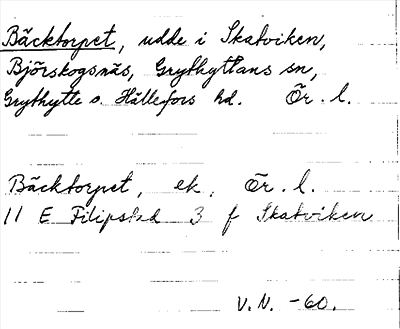 Bäcktorpet, udde i Skatviken,
Björskogsnäs, Grythyttans sn,
Grythytte o. Hällefors hd. Ör. l.
Bäcktorpet, ek, Ör. l.
11 E Filipstad 3 f Skatviken
V.N. -60.